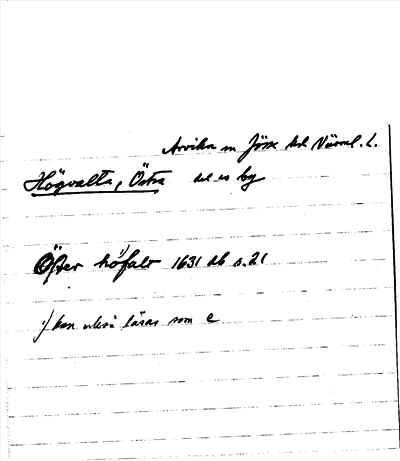 Arvika sn Jösse hd Värml. l.
Högvalta, Östra del av by
Öfter hö¹⁾falt 1631 Jb s. 21
¹⁾ kan också läsas som e